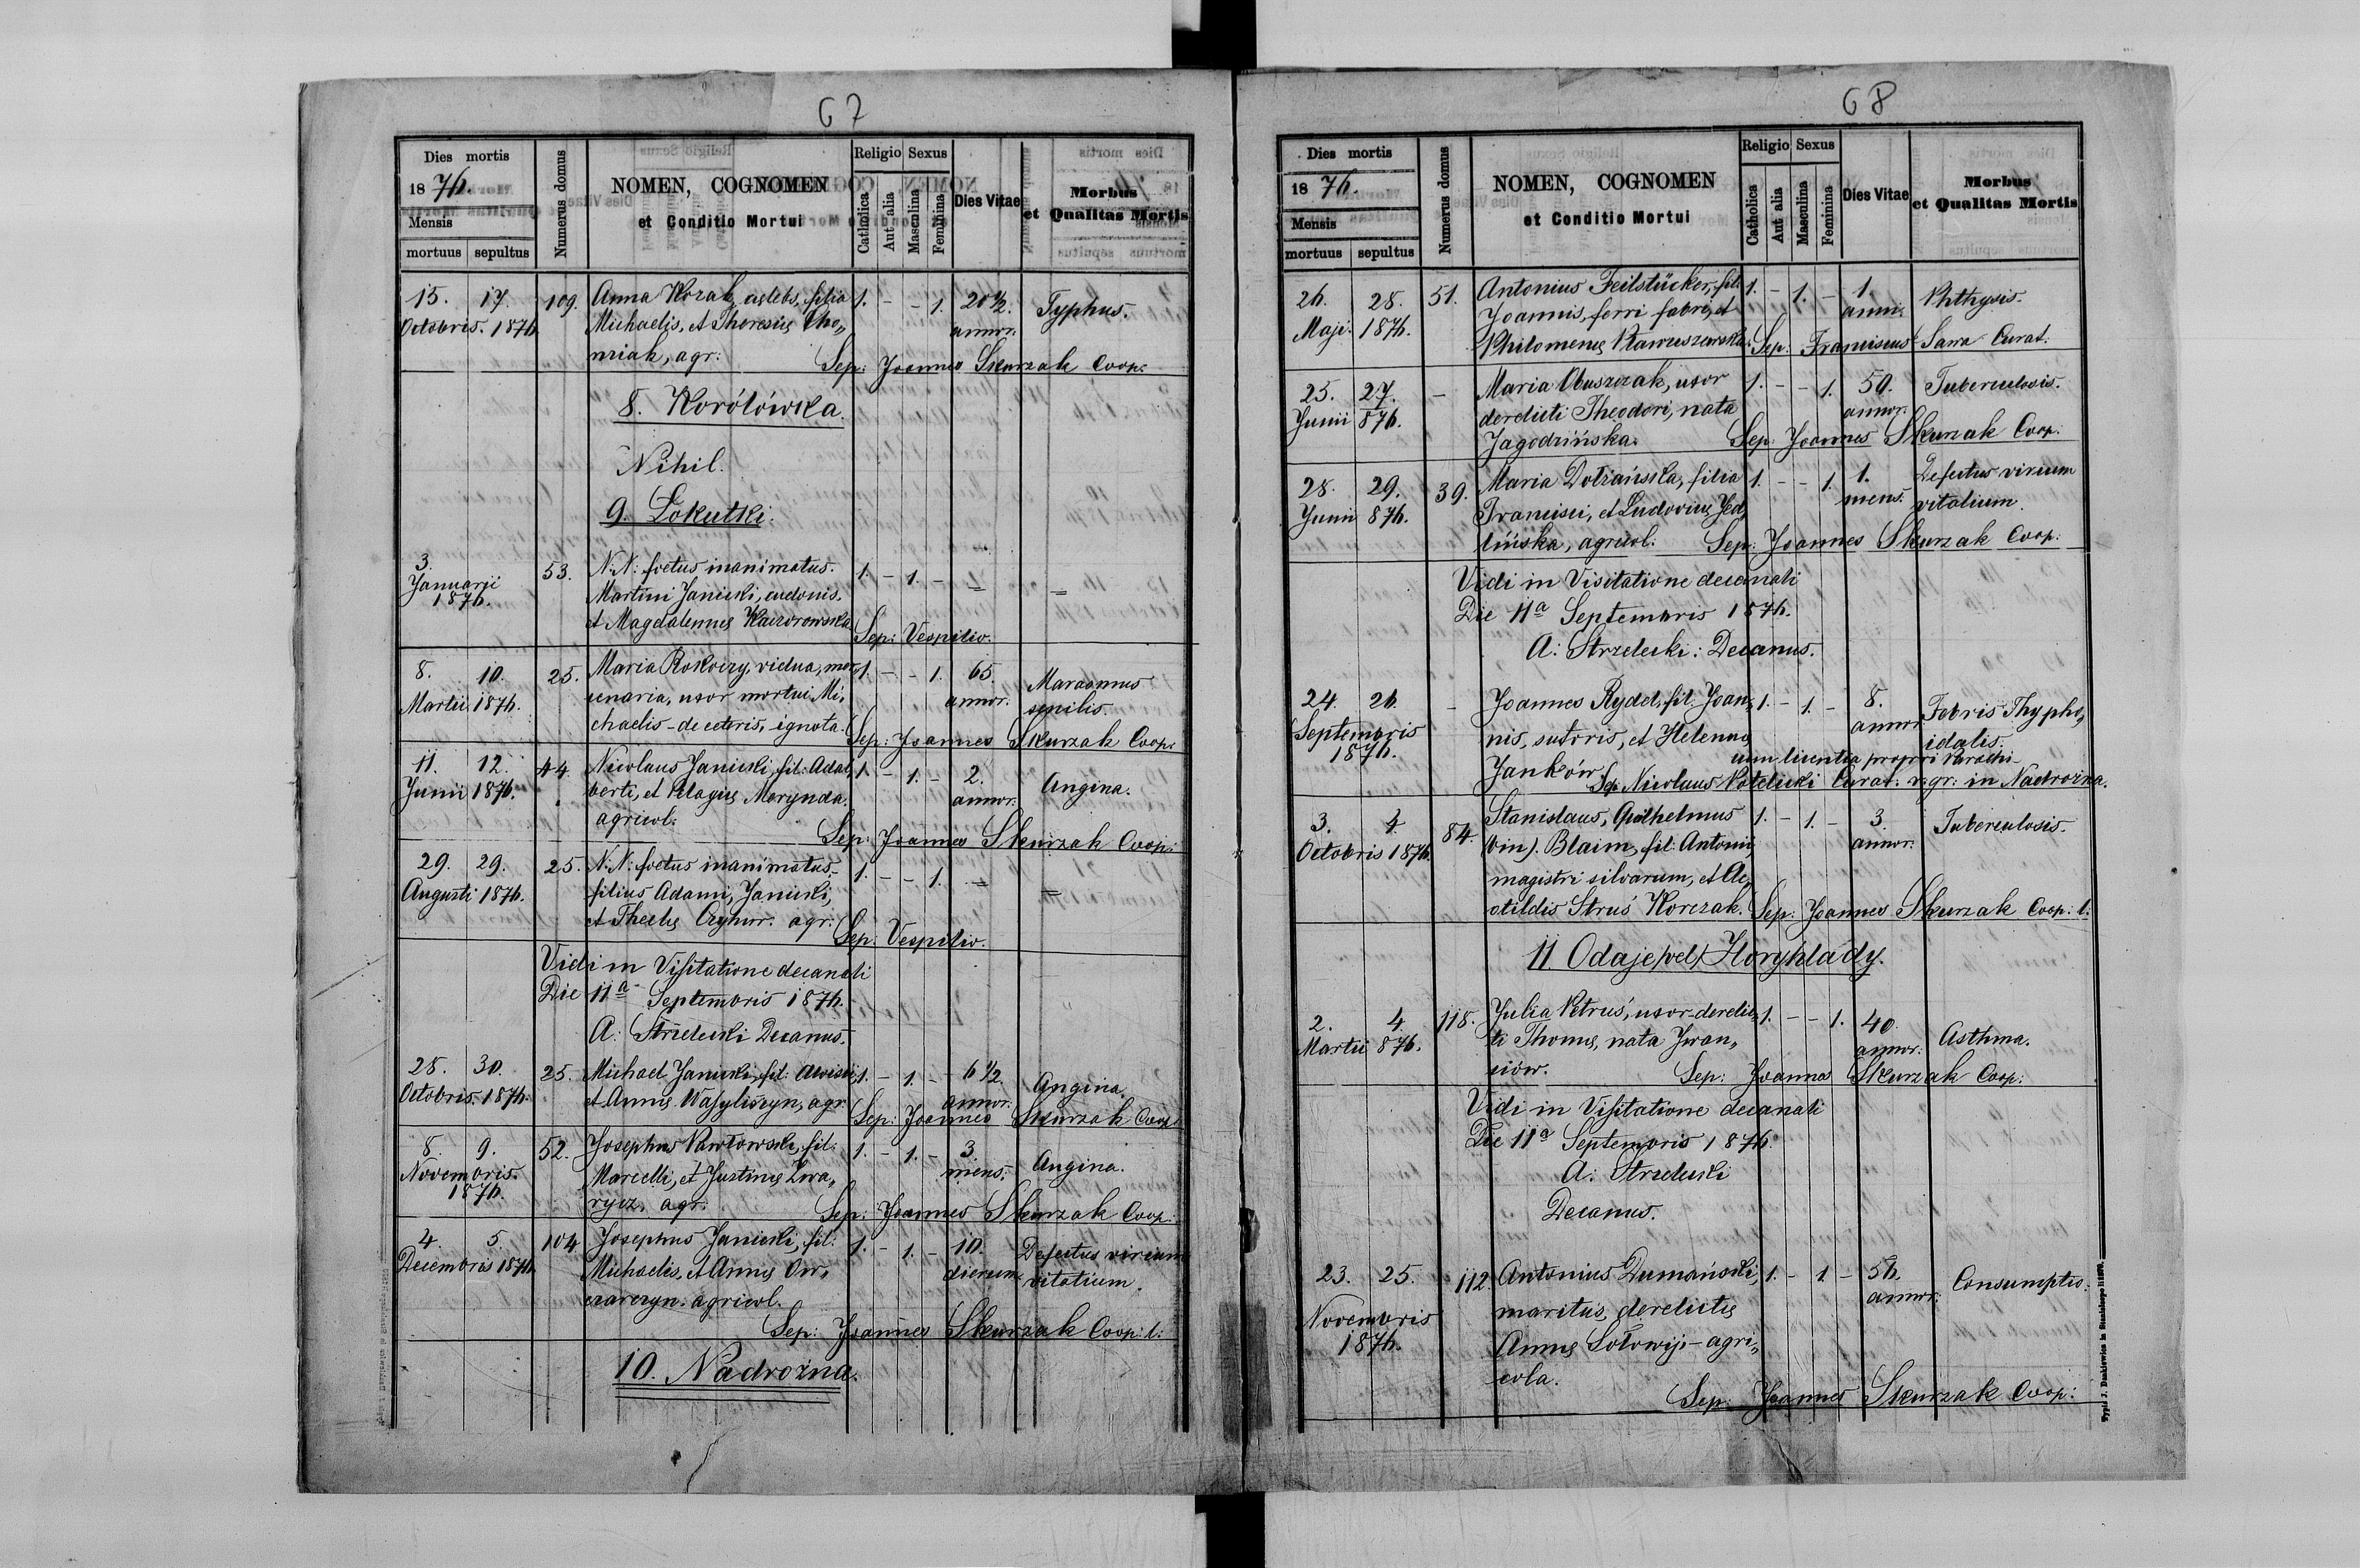 67
Dies mortis
1876.
Mensis
mortuus sepultus
Numerus domus
NOMEN, COGNOMEN
et Conditio Mortui
Religio Sexus
Catholica
Aut alia
Masculina
Feminina
Dies Vitae
Morbus
et Qualitas Mortis
15. 17. 109. Anna Kozak, caelebs, filia 1. - - 1. 20 1/2. Typhus.
Octobris. 1876. Michaelis, et Theresiae Cho„ annor.
miak, agr:
Sep: Joannes Skurzak Coop:
8. Korolówka.
Nihil.
9. Łokutki.
3. 53. N: N: foetus inanimatus. 1. - 1. - = =
Januarii Martini Janicki, cudonis.
1876. et Magdalenae Kaczorowska
Sep: Vespilio.
8. 10. 25. Maria Rokoczy, vidua, mer„ 1. - - 1. 65. Marasmus
Martii 1876. cenaria, uxor mortui Mi„ annor. senilis.
chaelis - de ceteris, ignota.
Sep: Joannes Skurzak Coop:
11. 12. 44. Nicolaus Janicki, fil: Adal„ 1. - 1. - 2. Angina.
Junii 1876. berti, et Pelagiae Marynda. annor.
agricol:
Sep: Joannes Skurzak Coop:
29. 29. 25. N: N: foetus inanimatus - 1. - - 1. = =
Augusti 1876. filius Adami, Janicki,
et Theclae agr:
Sep: Vespilio.
Vidi in Visitatione decanali
Die 11a Septembris 1876.
A: Strzelecki Decanus.
28. 30. 25. Michael Janicki, fil: 1. - 1. - 6 1/2. Angina.
Octobris. 1876. et Annae Wasyliszyn, agr: annor:
Sep: Joannes Skurzak Coop:
8. 9. 52. Josephus Pawłowski, fil: 1. - 1. - 3. Angina.
Novembris. Marcelli, et Justinae Zwa„ mens:
1876. rycz, agr:
Sep: Joannes Skurzak Coop:
4. 5. 104 Josephus Janicki, fil: 1. - 1. - 10. Defectus virium
Decembris 1876. Michaelis, et Annae Ow„ dierum vitalium.
czarczyn. agricol.
Sep: Joannes Skurzak Coop: l:
10. Nadrożna.
68
Dies mortis
1876.
Mensis
mortuus sepultus
Numerus domus
NOMEN, COGNOMEN
et Conditio Mortui
Religio Sexus
Catholica
Aut alia
Masculina
Feminina
Dies Vitae
Morbus
et Qualitas Mortis
26. 28. 51. Antonius Feilstücker, fil: 1. - 1. - 1. Phthysis.
Maji. 1876. Joannis, ferri fabri, et anni.
Philomenae
Sep: Franciscus Sawa Curat:
25. 27. - Maria Obuszczak, uxor 1. - - 1. 50. Tuberculosis.
Junii 876. derelicti Theodori, nata annor.
Jagodzińska.
Sep: Joannes Skurzak Coop:
28. 29. 39. Maria Dolżańska, filia 1. - - 1. 1. Defectus virium
Junii 876. Francisci, et Ludovicae Jed„ mens: vitalium.
lińska, agricol:
Sep: Joannes Skurzak Coop:
Vidi in Visitatione decanali
Die 11a Septembris 1876.
A: Strzelecki: Decanus.
24. 26. - Joannes Rydel, fil: Joan„ 1. - 1. - 8. Febris Thypho„
Septembris nis, sutoris, et Helenae annor. idalis.
1876. Janków
cum licentia proprii Parochi
Sep: Nicolaus Potelicki Curat: r: gr: in Nadrożna.
3. 4. 84. Stanislaus, Guilhelmus 1. - 1. - 3. Tuberculosis.
Octobris 1876. (bin). Blaim, fil: Antonii, annor.
magistri silvarum, et Cl„
otildis Struś Korczak.
Sep: Joannes Skurzak Coop: l:
11. Odaje/vel/Horyhlady.
2. 4. 118. Julia Petruś, uxor derelic„ 1. - - 1. 40. Asthma.
Martii 876. ti Thomae, nata Iwan„ annor:
siów.
Sep: Joannes Skurzak Coop:
Vidi in Visitatione decanali
Die 11a Septembris 1876.
A: Strzelecki
Decanus.
23. 25. 112. Antonius Dumański, 1. - 1. - 56. Consumptio.
Novembris maritus, derelictae annor:
1876. Annae Sołowij - agri„
cola.
Sep: Joannes Skurzak Coop:
Typis J. Dankiewicz in Stanislaopol 1870.